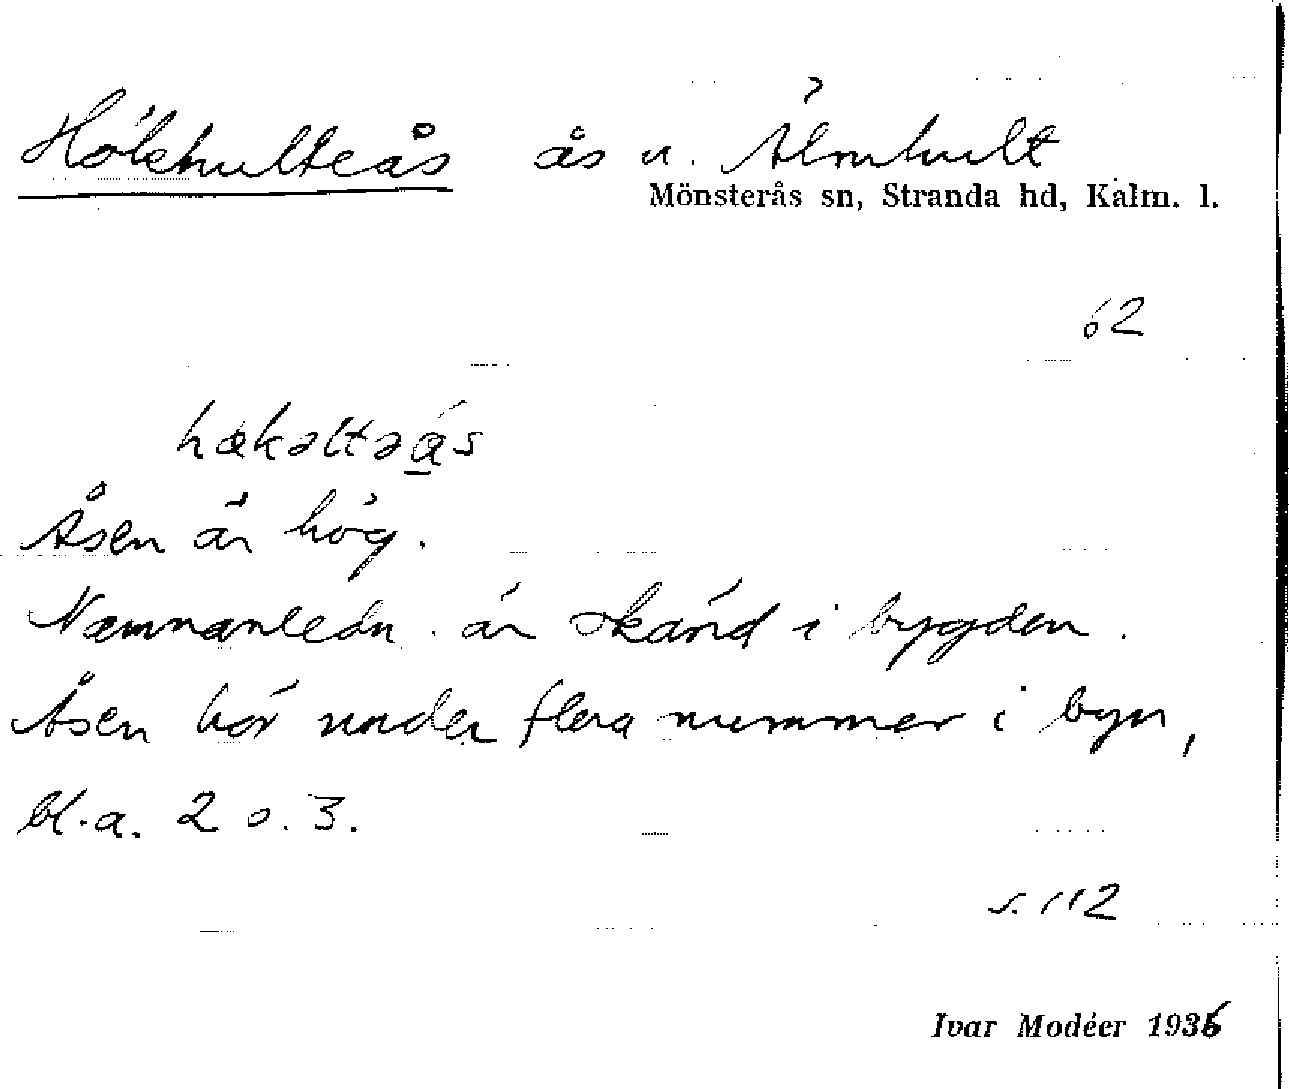 Hökhulteås ås u. Älmhult
Mönsterås sn, Stranda hd, Kalm. l.
62
hækəltəås
Åsen är hög.
Namnanledn. är okänd i bygden.
Åsen hör under flera nummer i byn,
bl.a. 2 o. 3.
s. 112
Ivar Modéer 1936